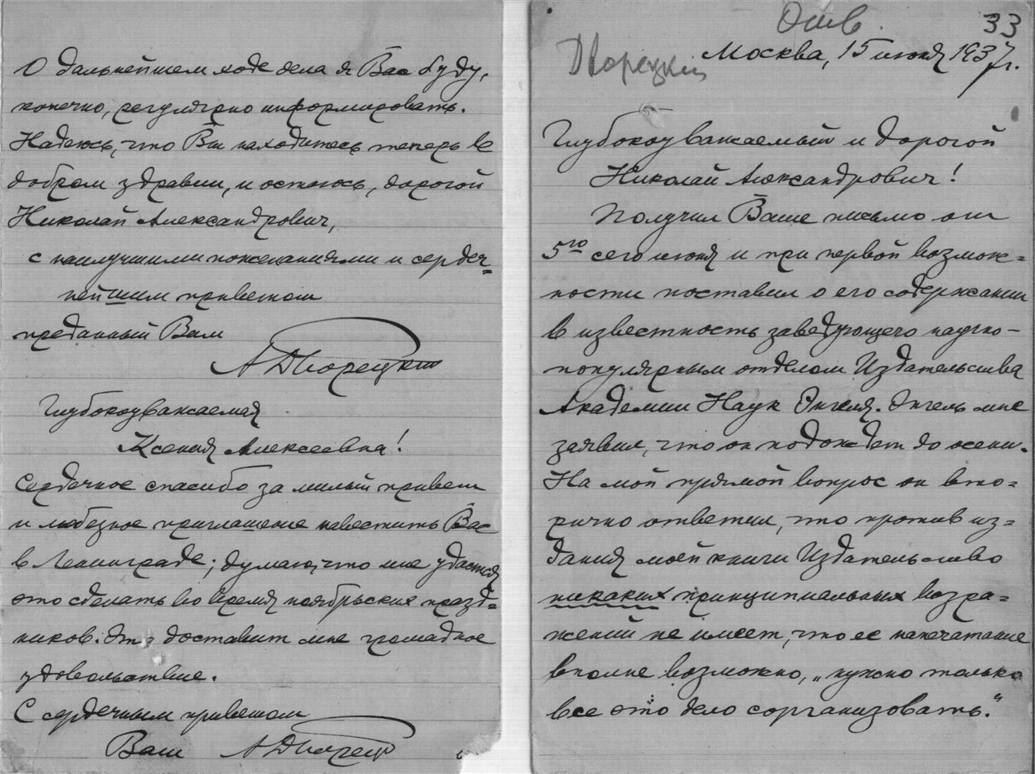 Отв
33
Дворецкий
Москва, 15 июня 1937 г.
Глубокоуважаемый и дорогой
Николай Александрович!
Получил Ваше письмо от
5го сего июня и при первой возмож=
ности поставил о его содержании
в известность заведующего научно-
популярным отделом Издательства
Академии Наук Энгеля. Энгель мне
заявил, что он подождет до осени.
На мой прямой вопрос он вто=
рично ответил, что против из=
дания моей книги Издательство
никаких принципиальных возра=
жений не имеет, что ее напечатание
вполне возможно, „нужно только
все это дело сорганизовать."
О дальнейшем ходе дела я Вас буду,
конечно, регулярно информировать.
Надеюсь, что Вы находитесь теперь в
добром здравии, и остаюсь, дорогой
Николай Александрович,
с наилучшими пожеланиями и сердеч=
нейшим приветом
преданный Вам
А Дворецкий
Глубокоуважаемая
Ксения Алексеевна!
Сердечное спасибо за милый привет
и любезное приглашение навестить Вас
в Ленинграде; думаю, что мне удастся
это сделать во время ноябрьских празд=
ников. Это доставит мне громадное
удовольствие.
С сердечным приветом
Ваш А Дворецк